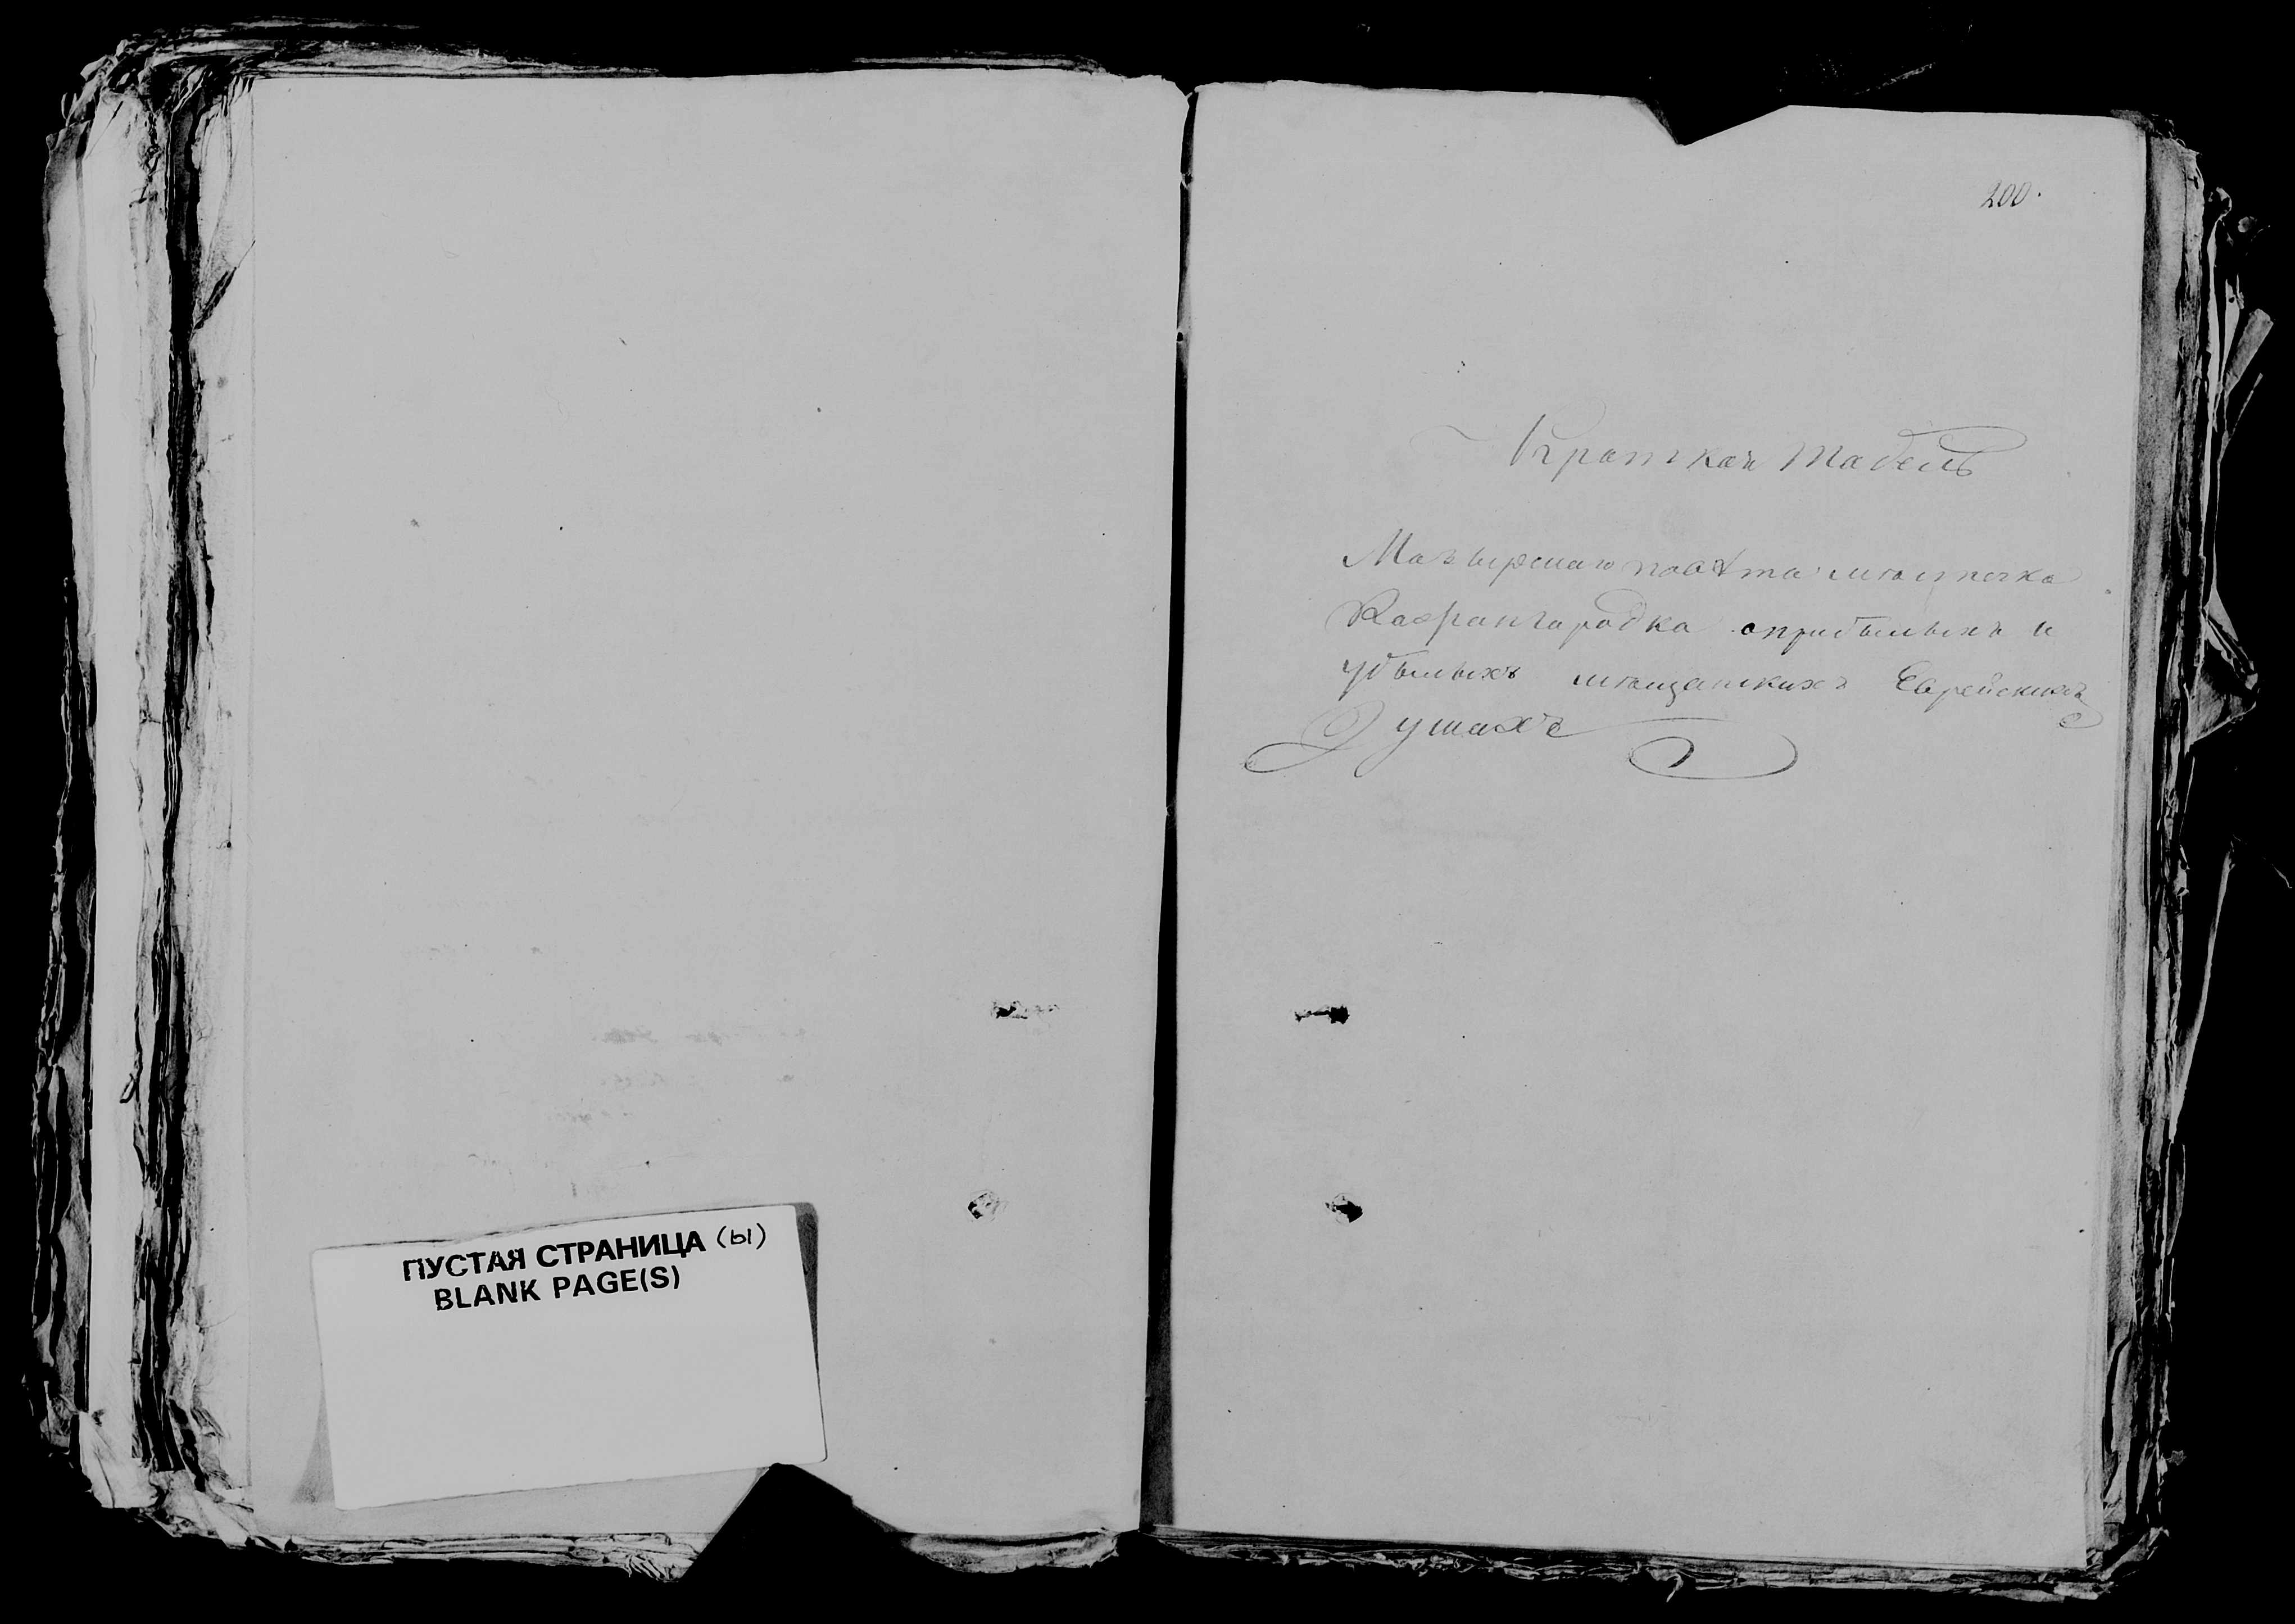 ПУСТАЯ СТРАНИЦА (ы)
BLANK PAGE(S)
200.
Краткая Табель
Мазырскаго повѣта мѣстечка
Кажангородка оприбылыхъ и
убылыхъ мѣщанскихъ Еврейскихъ
Душахъ